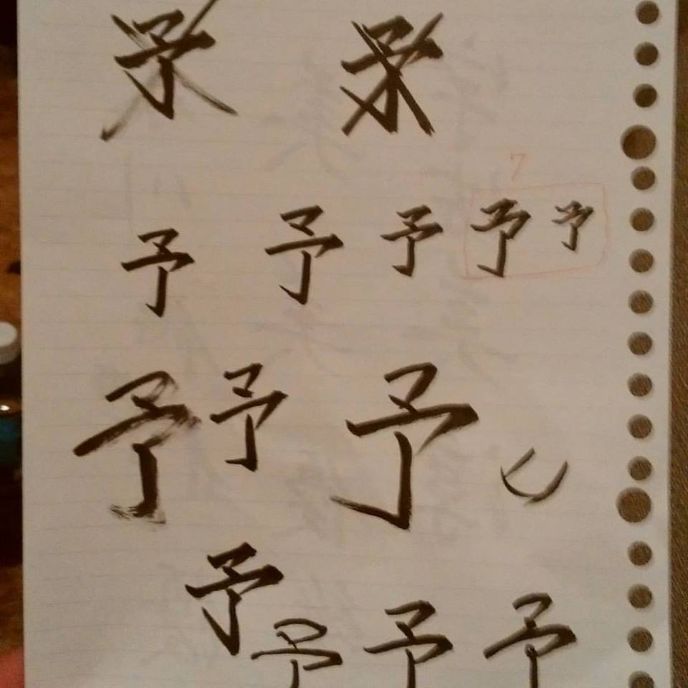 予 予
予 予 予 予 予
予 予 予
予 予 予 予